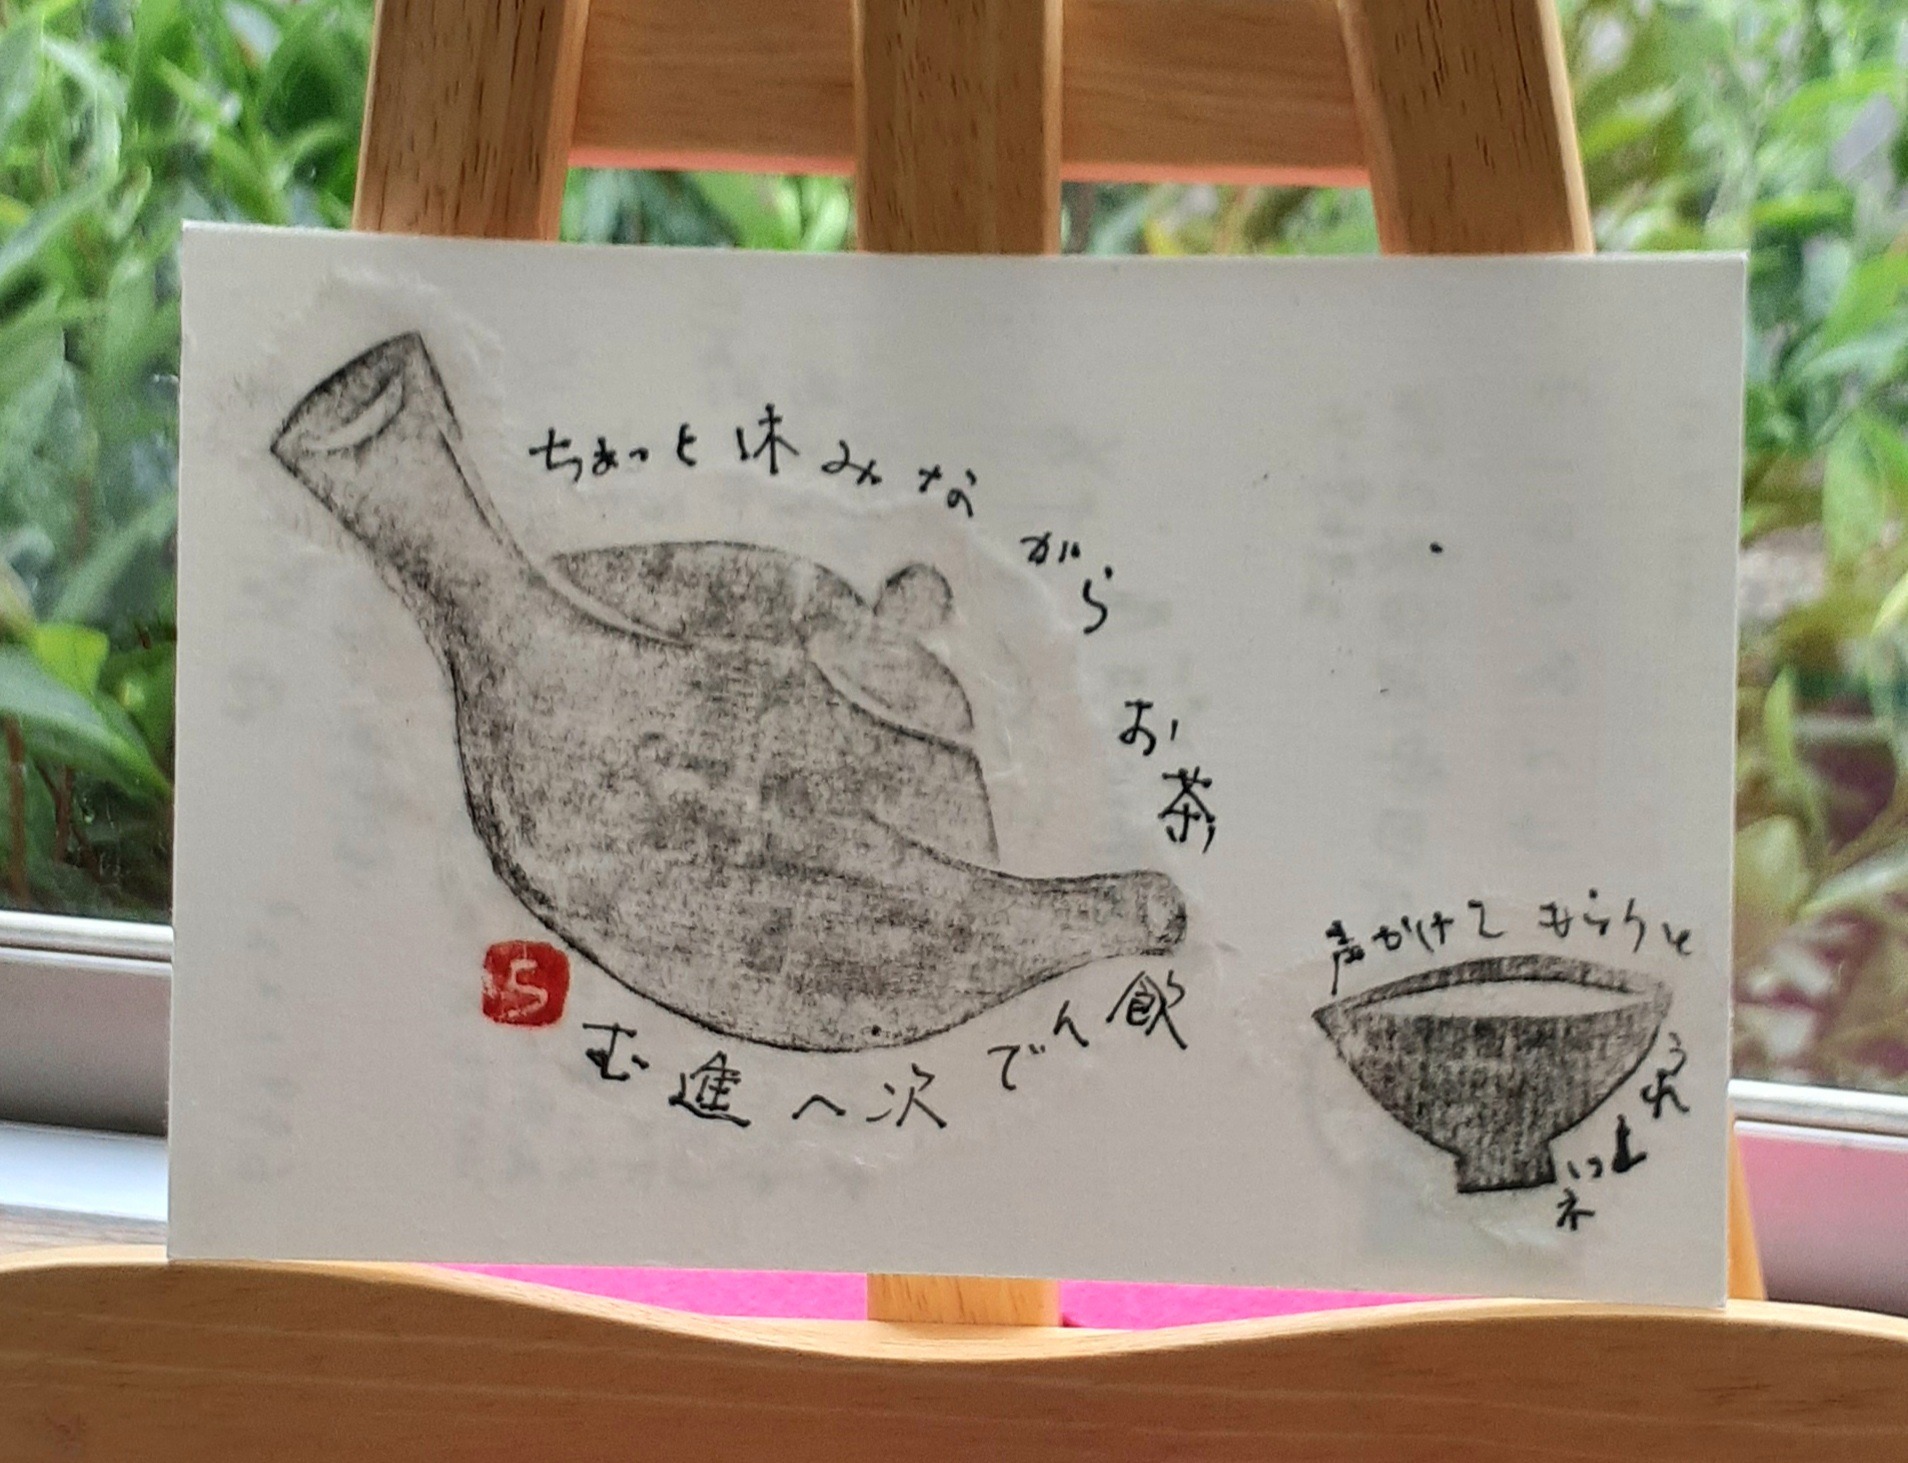 ちょっと休みながら
お茶
飲んで次へ進む
ら
声かけてもらうと
うれしいネ